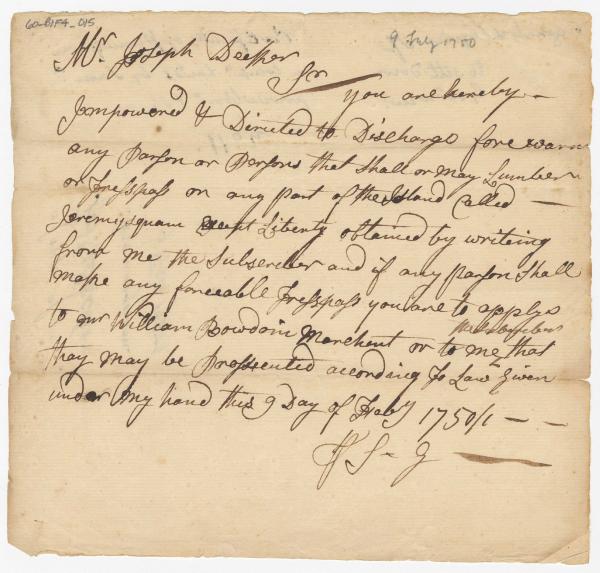 60-B1F4_015
9 Feby 1750
Mr. Joseph Decker
Sr
you are hereby —
Jmpowered & Directed to Discharge forewarn
any Parson or Persons that Shall or may Lumber
or Tresspass on any Part of the Island Called —
Jeremysquam Liberty obtained by writeing
from me the Subscriber and if any Parson Shall
make any forceable Tresspass you are to apply
to mr William Bowdoin Merchent or to me the Subscriber that
thay may be Prossented according To Law Given
under My hand this 9 Day of Feby 1750/1 — —